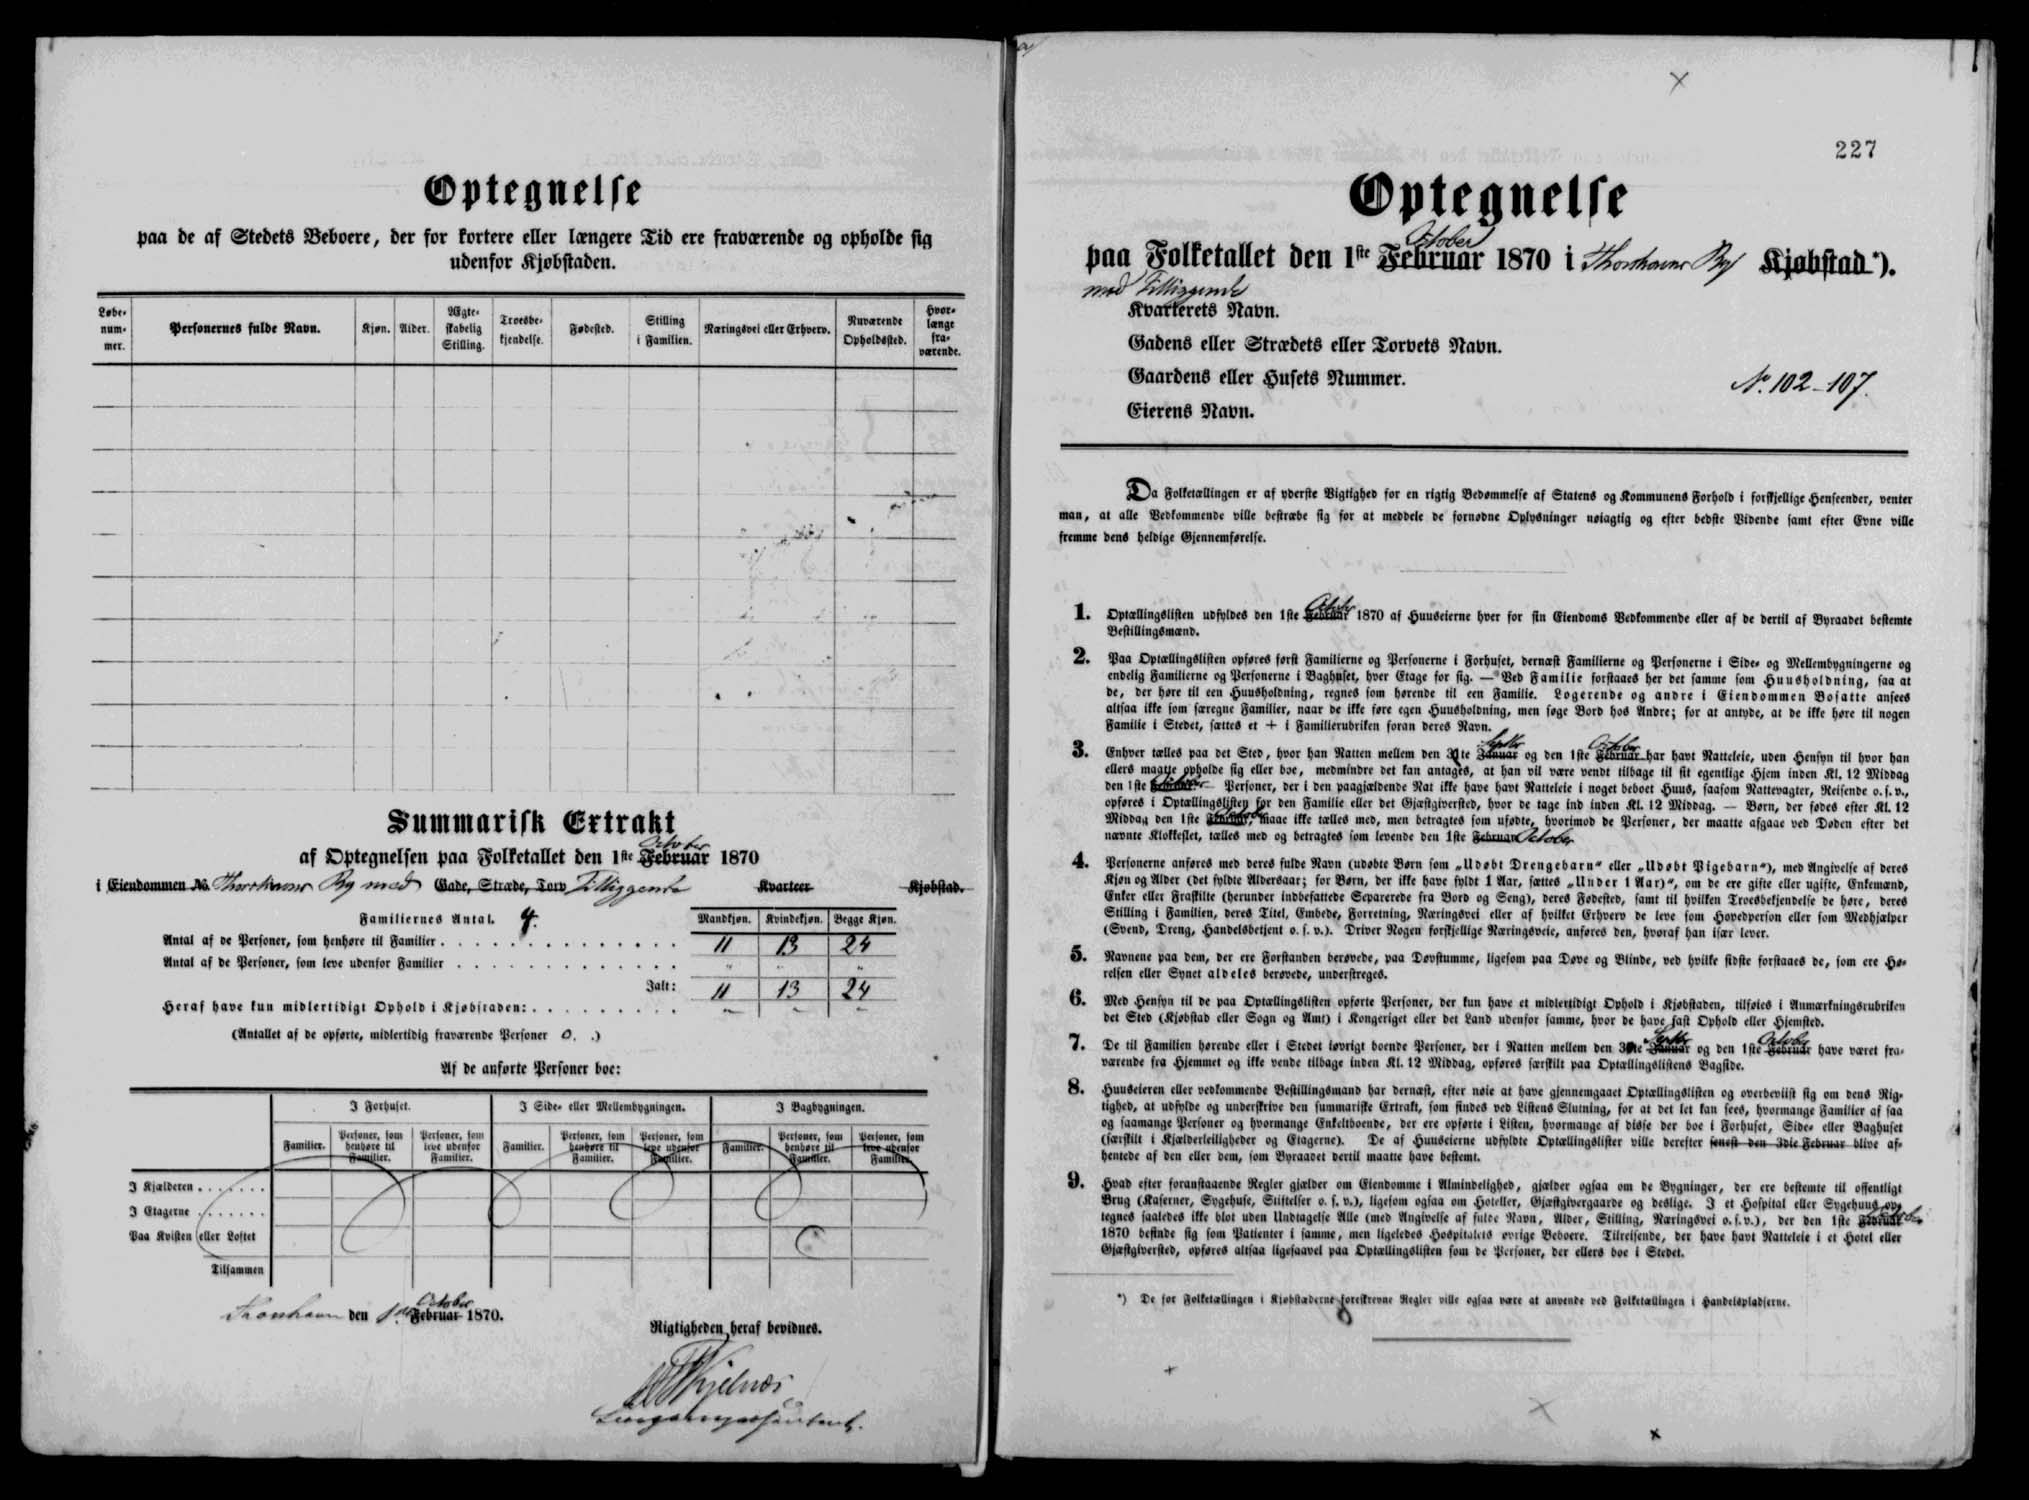 Optegnelse
paa de af Stedets Beboere, der for kortere eller længere Tid ere fraværende og opholde sig
udenfor Kjøbstaden.
Løbe-
num-
mer.
Personernes fulde Navn.
Kjøn.
Alder.
Ægte-
skabelig
Stilling.
Troesbe-
kjendelse.
Fødested.
Stilling
i Familien.
Næringsvei eller Erhverv.
Nuværende
Opholdssted.
Hvor-
længe
fra-
værende.
Summarisk Extrakt
October
af Optegnelsen paa Folketallet den 1ste Februar 1870
i Eiendommen No. Thorshavns By med Gade, Stræde, Torv Tilliggende Kvarteer Kjøbstad.
Familiernes Antal. 4.
Mandkjøn. Kvindekjøn. Begge Kjøn.
Antal af de Personer, som henhøre til Familier . . . 11 13 24
Antal af de Personer, som leve udenfor Familier . . . " " "
Ialt: 11 13 24
Heraf have kun midlertidigt Ophold i Kjøbstaden: . . . " " "
(Antallet af de opførte, midlertidig fraværende Personer 0. .)
Af de anførte Personer boe:
I Forhuset. I Side- eller Mellembygningen. I Bagbygningen.
Familier. Personer, som henhøre til Familier. Personer, som leve udenfor Familier. Familier. Personer, som henhøre til Familier. Personer, som leve udenfor Familier. Familier. Personer, som henhøre til Familier. Personer, som leve udenfor Familier.
I Kjælderen . . . . . . .
I Etagerne . . . . . . .
Paa Kvisten eller Loftet
Tilsammen
October
Thorshavn den 1ste Februar 1870.
Rigtigheden heraf bevidnes.
227
Optegnelse
October
paa Folketallet den 1ste Februar 1870 i Thorshavns By Kjøbstad*).
med Tilliggende
Kvarterets Navn.
Gadens eller Strædets eller Torvets Navn.
Gaardens eller Husets Nummer. No. 102-107.
Eierens Navn.
Da Folketællingen er af yderste Vigtighed for en rigtig Bedømmelse af Statens og Kommunens Forhold i forskjellige Henseender, venter
man, at alle Vedkommende ville bestræbe sig for at meddele de fornødne Oplysninger nøiagtig og efter bedste Vidende samt efter Evne ville
fremme dens heldige Gjennemførelse.
October
1. Optællingslisten udfyldes den 1ste Februar 1870 af Huuseierne hver for sin Eiendoms Vedkommende eller af de dertil af Byraadet bestemte
Bestillingsmænd.
2. Paa Optællingslisten opføres først Familierne og Personerne i Forhuset, dernæst Familierne og Personerne i Side- og Mellembygningerne og
endelig Familierne og Personerne i Baghuset, hver Etage for sig. — Ved Familie forstaaes her det samme som Huusholdning, saa at
de, der høre til een Huusholdning, regnes som hørende til een Familie. Logerende og andre i Eiendommen Bosatte ansees
altsaa ikke som særegne Familier, naar de ikke føre egen Huusholdning, men søge Bord hos Andre; for at antyde, at de ikke høre til nogen
Familie i Stedet, sættes et + i Familierubriken foran deres Navn.
Septbr October
3. Enhver tælles paa det Sted, hvor han Natten mellem den 30te Januar og den 1ste Februar har havt Natteleie, uden Hensyn til hvor han
ellers maatte opholde sig eller boe, medmindre det kan antages, at han vil være vendt tilbage til sit egentlige Hjem inden Kl. 12 Middag
October
den 1ste Februar. — Personer, der i den paagjældende Nat ikke have havt Natteleie i noget beboet Huus, saasom Nattevagter, Reisende o. s. v.,
opføres i Optællingslisten for den Familie eller det Gjæstgiversted, hvor de tage ind inden Kl. 12 Middag. — Børn, der fødes efter Kl. 12
October
Middag den 1ste Februar, maae ikke tælles med, men betragtes som ufødte, hvorimod de Personer, der maatte afgaae ved Døden efter det
nævnte Klokkeslet, tælles med og betragtes som levende den 1ste Februar October
4. Personerne anføres med deres fulde Navn (udøbte Børn som „Udøbt Drengebarn“ eller „Udøbt Pigebarn“), med Angivelse af deres
Kjøn og Alder (det fyldte Aldersaar; for Børn, der ikke have fyldt 1 Aar, sættes „Under 1 Aar)“, om de ere gifte eller ugifte, Enkemænd,
Enker eller Fraskilte (herunder indbefattede Separerede fra Bord og Seng), deres Fødested, samt til hvilken Troesbekjendelse de høre, deres
Stilling i Familien, deres Titel, Embede, Forretning, Næringsvei eller af hvilket Erhverv de leve som Hovedperson eller som Medhjælper
(Svend, Dreng, Handelsbetjent o. s. v.). Driver Nogen forskjellige Næringsveie, anføres den, hvoraf han især lever.
5. Navnene paa dem, der ere Forstanden berøvede, paa Døvstumme, ligesom paa Døve og Blinde, ved hvilke sidste forstaaes de, som ere Hø-
relsen eller Synet aldeles berøvede, understreges.
6. Med Hensyn til de paa Optællingslisten opførte Personer, der kun have et midlertidigt Ophold i Kjøbstaden, tilføies i Anmærkningsrubriken
det Sted (Kjøbstad eller Sogn og Amt) i Kongeriget eller det Land udenfor samme, hvor de have fast Ophold eller Hjemsted.
Septbr October
7. De til Familien hørende eller i Stedet iøvrigt boende Personer, der i Natten mellem den 30te Januar og den 1ste Februar have været fra-
værende fra Hjemmet og ikke vende tilbage inden Kl. 12 Middag, opføres særskilt paa Optællingslistens Bagside.
8. Huuseieren eller vedkommende Bestillingsmand har dernæst, efter nøie at have gjennemgaaet Optællingslisten og overbeviist sig om dens Rig-
tighed, at udfylde og underskrive den summariske Extrakt, som findes ved Listens Slutning, for at det let kan sees, hvormange Familier af saa
og saamange Personer og hvormange Enkeltboende, der ere opførte i Listen, hvormange af disse der boe i Forhuset, Side- eller Baghuset
(særskilt i Kjælderleiligheder og Etagerne). De af Huuseierne udfyldte Optællingslister ville derefter senest den 3die Februar blive af-
hentede af den eller dem, som Byraadet dertil maatte have bestemt.
9. Hvad efter foranstaaende Regler gjælder om Eiendomme i Almindelighed, gjælder ogsaa om de Bygninger, der ere bestemte til offentligt
Brug (Kaserner, Sygehuse, Stiftelser o. s. v.), ligesom ogsaa om Hoteller, Gjæstgivergaarde og deslige. I et Hospital eller Sygehuus op-
tegnes saaledes ikke blot uden Undtagelse Alle (med Angivelse af fulde Navn, Alder, Stilling, Næringsvei o. s. v.), der den 1ste Februar October
1870 befinde sig som Patienter i samme, men ligeledes Hospitalets øvrige Beboere. Tilreisende, der have havt Natteleie i et Hotel eller
Gjæstgiversted, opføres altsaa ligesaavel paa Optællingslisten som de Personer, der ellers boe i Stedet.
*) De for Folketællingen i Kjøbstæderne foreskrevne Regler ville ogsaa være at anvende ved Folketællingen i Handelspladserne.